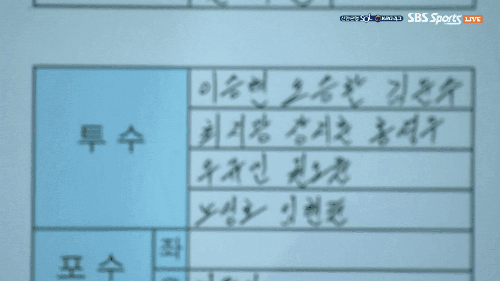 SBS Sports LIVE
투수
이승현 오승환 김윤수
최지광 장지훈 홍정우
우규민 권오준
노성호 임현준
포수 좌